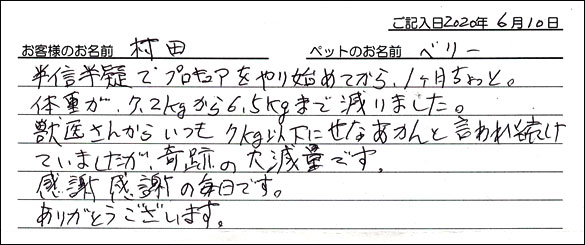 ご記入日2020年 6月10日
お客様のお名前 村田 ペットのお名前 ベリー
半信半疑でプロキュアをやり始めてから、1ヶ月ちょっと。
体重が、7.2kgから6.5kgまで減りました。
獣医さんからいつも7kg以下にせなあかんと言われ続け
ていましたが、奇跡の大減量です。
感謝感謝の毎日です。
ありがとうございます。